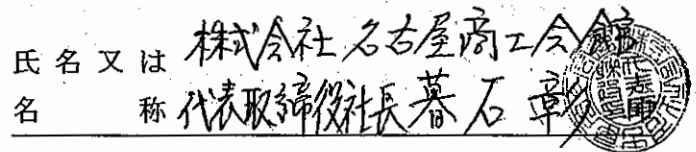 氏名又は 株式会社 名古屋商工会館
名称 代表取締役社長 暮石 彰